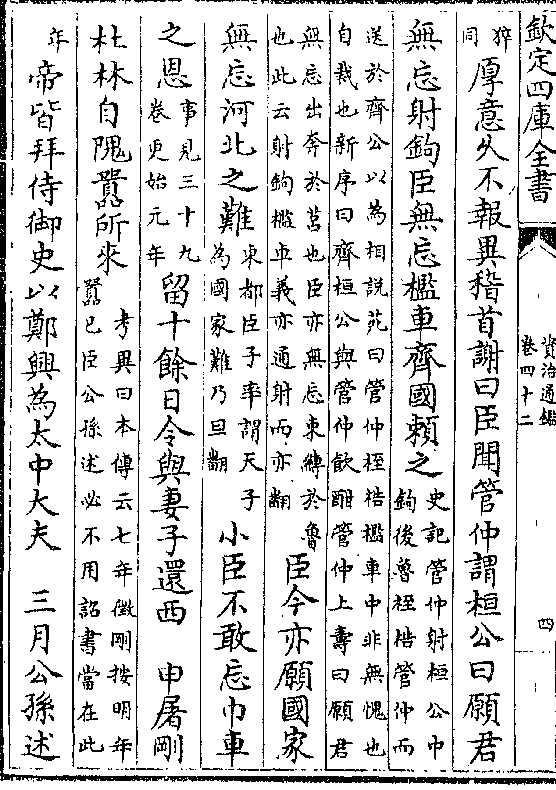 欽定四庫全書
資治通鑑
卷四十二
四
猝
同
厚意乆不報異稽首謝曰臣聞管仲謂桓公曰願君
無忘射鉤臣無忘檻車齊國頼之
史記管仲射桓公中
鉤後魯桎梏管仲而
送於齊公以為相說苑曰管仲桎梏檻車中非無愧也
自裁也新序曰齊桓公與管仲飲酣管仲上壽曰願君
無忘出奔於莒也臣亦無忘束縛於魯
也此云射鉤檻車義亦通射而亦翻
臣今亦願國家
無忘河北之難
東都臣子率謂天子
為國家難乃旦翻
小臣不敢忘巾車
之恩
事見三十九
卷更始元年
留十餘日令與妻子還西　申屠剛
杜林自隗囂所來
考異曰本傳云七年徵剛按明年
囂已臣公孫述必不用詔書當在此
年
帝皆拜侍御史以鄭興為太中大夫　三月公孫述